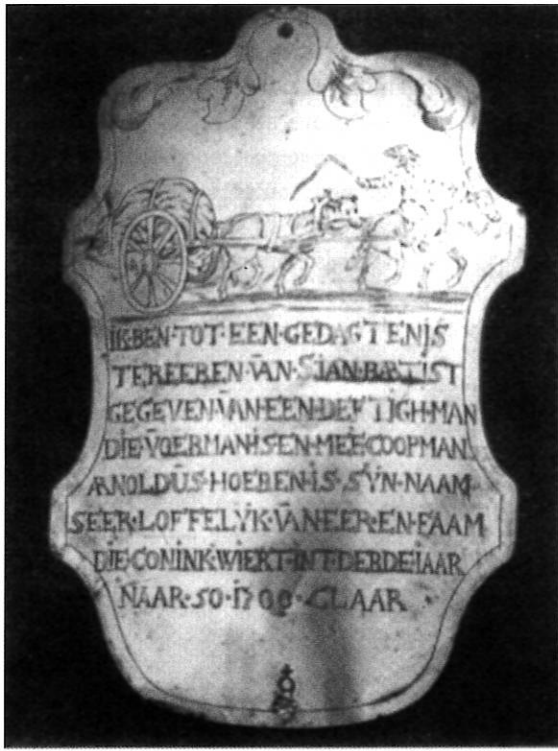 IK·BEN·TOT·EEN·GEDAGTENIS
TEREEREN·VAN·SIAN·BÆTIST
GEGEVEN·VAN·EEN·DEFTIGH·MAN
DIE·VOERMAN·IS·EN·MEE·COOPMAN
ÆNOLDUS·HOEBEN·IS·SYN·NAAM
SEER·LOFFELYK·VAN·EER·EN·FAAM
DIE·CONINK·WIERT·INT·DERDE·IAAR
NAAR·50·1700·CLAAR